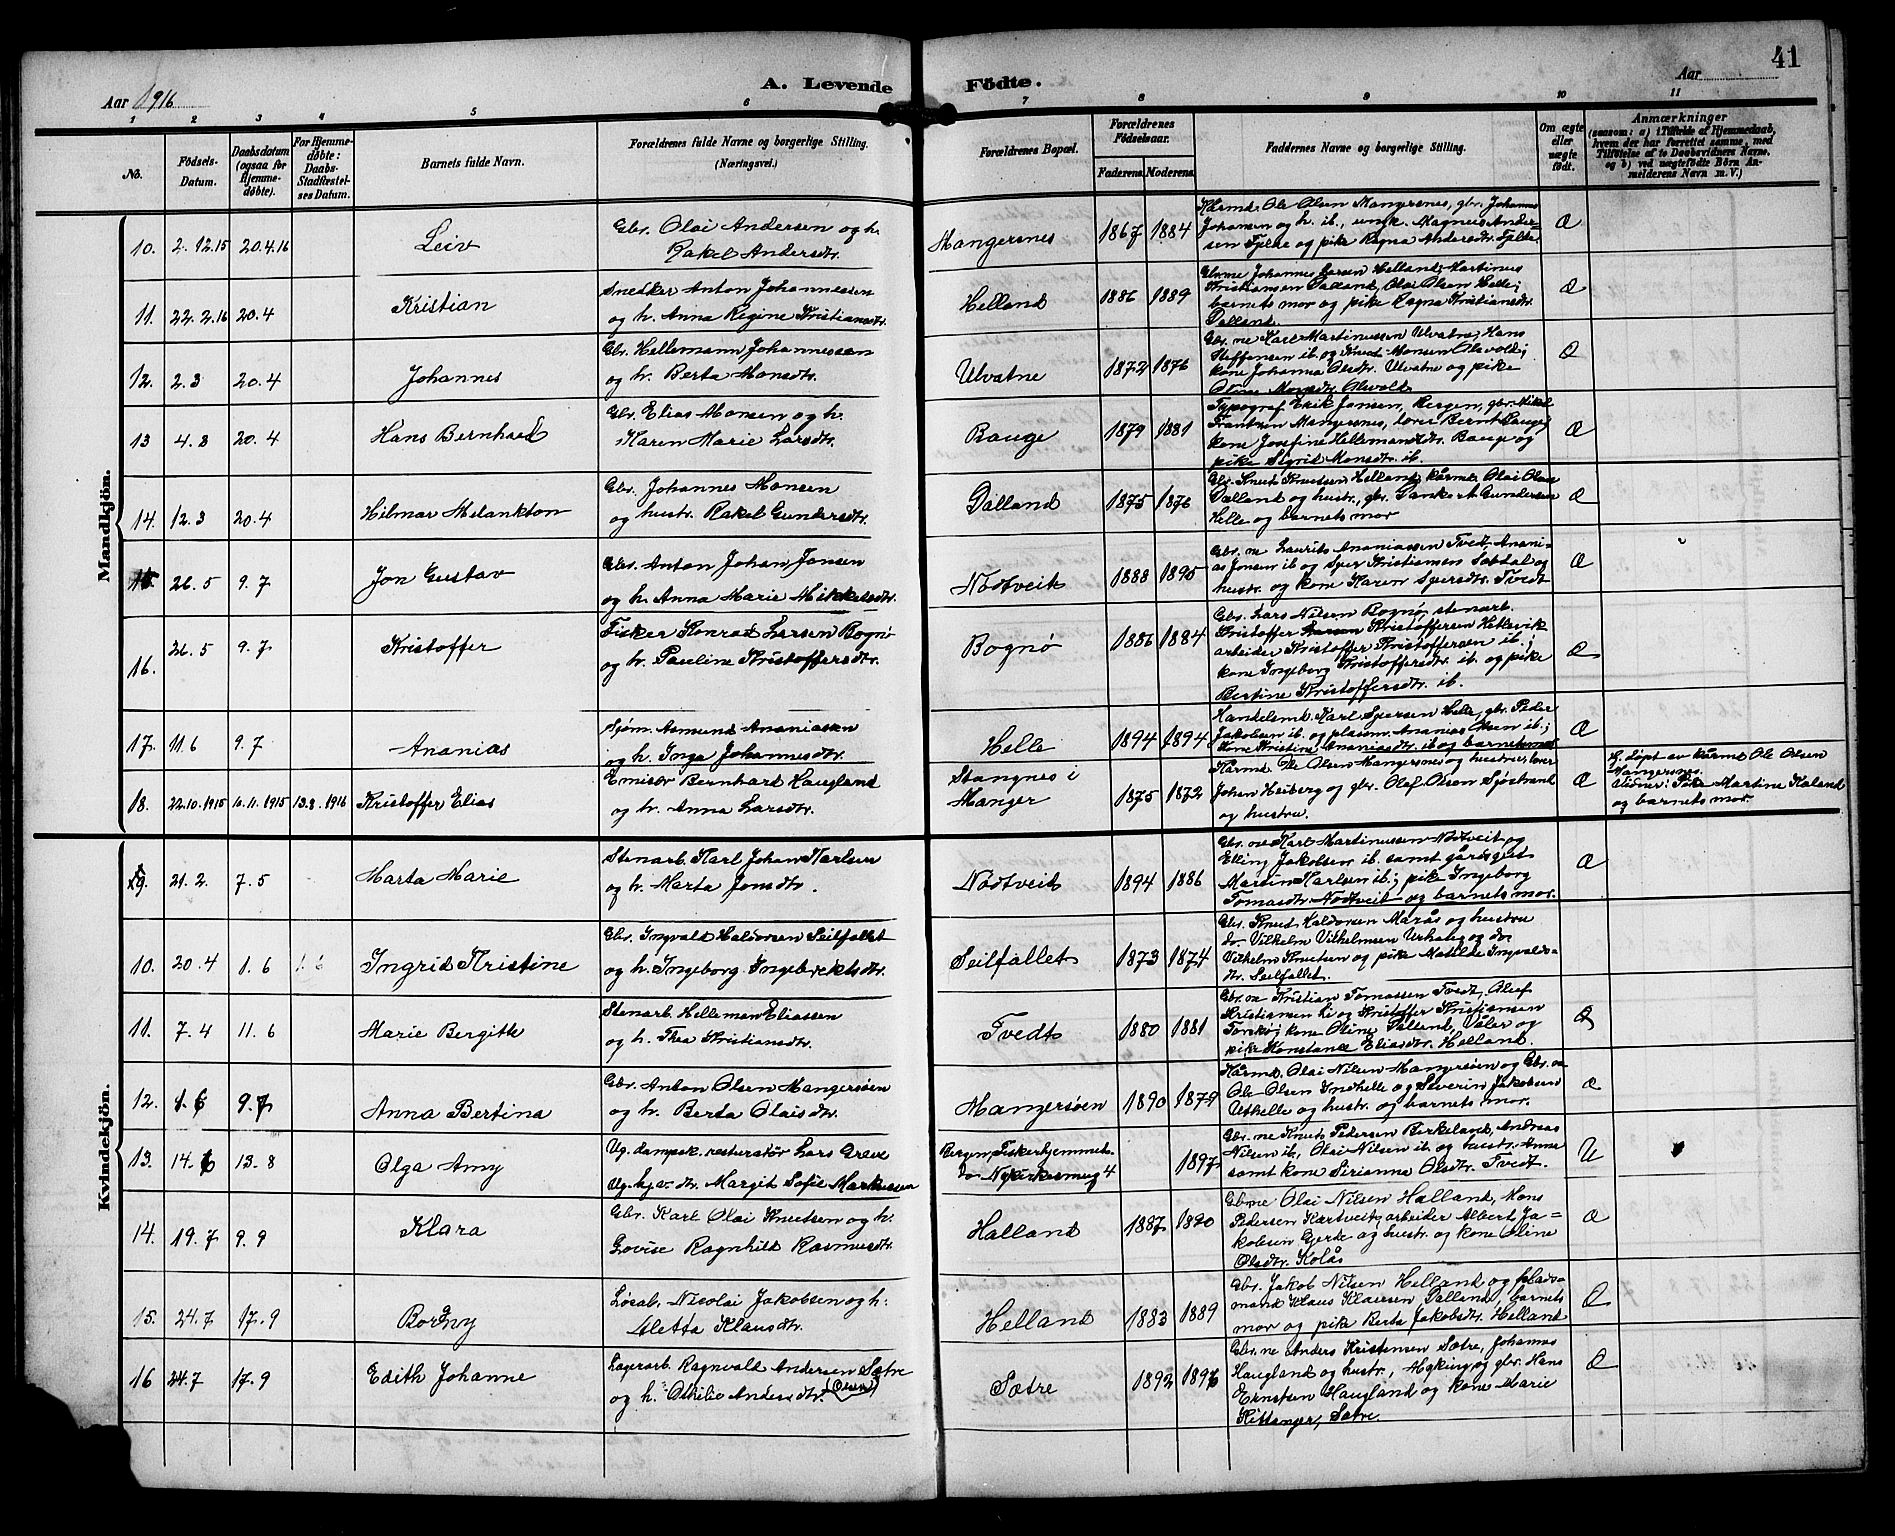 41
Aar 1916
A. Levende Födte.
Aar
1 2 3 4 5 6 7 8 9 10 11
No.
Födsels-Datum.
Daabsdatum (ogsaa for Hjemmedöbte).
For Hjemmedöbte: Daabs-Stadfæstelses Datum.
Barnets fulde Navn.
Forældrenes fulde Navne og borgerlige Stilling. (Næringsvei.)
Forældrenes Bopæl.
Forældrenes Födselsaar.
Faderens. Moderens.
Faddernes Navne og borgerlige Stilling.
Om ægte eller uægte födt.
Anmærkninger
(saasom: a) i Tilfælde af Hjemmedaab, hvem der har forrettet samme, med Tilföielse af to Daabsvidners Navne, og b) ved uægtefödte Börn Anmelderens Navn m. V.)
Mandkjön.
10. 2.12.15 20.4.16 Leiv
Gbr. Olai Andersen og h.
Rakel Andersdtr.
Mangersnes 1867 1884
Kårmd. Ole Olsen Mangersnes, gbr. Johannes
Johansen og h. ib., ungk. Magnus Ander-
sen Fjelde og pike Ragna Andersdtr. Fjelde.
Æ
11. 22.2.16 20.4 Kristian
Snedker Anton Johannessen
og h. Anna Regine Kristiansdtr.
Helland 1886 1889
Gbrne Johannes Larsen Helland, Martinus
Kristiansen Dalland, Olai Olsen Helle;
barnets mor og pike Ragna Kristiansdtr.
Dalland.
Æ
12. 2.3 20.4 Johannes
Gbr. Hellemann Johannessen
og h. Berta Monsdtr.
Ulvatne 1872 1876
Gbr. ne Karl Martinussen Ulvatne, Hans
Steffensen ib. og Knut Monsen Olsvold;
kone Johanna Olsdtr. Ulvatne og pike
Oline Monsdtr. Olsvold
Æ
13 4.3 20.4 Hans Bernhard
Gbr. Elias Monsen og h.
Karen Marie Larsdtr.
Bauge 1879 1881
Typograf Erik Jansen, Bergen, gbr. Mikal
Frantzen Mangersnes, lærer Bernt Bauge,
kone Josefine Hellemansdtr. Bauge og
pike Sigrid Monsdtr. ib.
Æ
14. 12.3 20.4 Hilmar Melankton
Gbr. Johannes Monsen
og hustr. Rakel Gundersdtr.
Dalland 1875 1876
Gbr. Knut Knutsen Helland, kårmd. Olai Olsen
Dalland og hustr., gbr. Danke M Gundersen
Helle og barnets mor
Æ
15. 26.5 9.7 Jon Gustav
Gbr. Anton Johan Jonsen
og h. Anna Marie Mikkelsdtr.
Nödtveit 1888 1895
Gbr. ne Laurits Ananiassen Tvedt, Anani-
as Jonsen ib og Sjur Kristiansen Sæbdal og
hustr. og kone Karen Sjursdtr. Tvedt
Æ
16. 26.5 9.7 Kristoffer
Fisker Konrad Larsen Bognø
og h. Pauline Kristoffersdtr.
Bognø 1886 1884
Gbr. Lars Nilsen Bognø, stenarb.
Kristoffer Kristoffersen Hetlevik
arbeider Kristoffer Kristoffersen ib.;
kone Ingeborg Kristoffersdtr. ib. og pike
Bertine Kristoffersdtr. ib.
Æ
17. 11.6 9.7 Ananias
Sjøm. Asmund Ananiassen
og h. Inga Johannesdtr.
Helle 1894 1894
Handelsmd. Karl Sjursen Helle, gbr. Peder
Jakobsen ib. og plasm. Ananias Olsen ib.;
kone Kristine Ananiasdtr. ib og barnets mor
Æ
18. 22.10.1915 10.11.1915 13.8.1916 Kristoffer Elias
Emissær Bernhard Haugland
og h. Anna Larsdtr.
Stangnes i
Manger 1875 1872
Kårmd. Ole Olsen Mangersnes og hustru, lærer
Johan Heiberg og gbr. Olaf Olsen Sjøstrand
og hustru.
Æ
Hj. døpt av kårmd Ole Olsen
Mangersnes.
Vidner: Pike Martine Kaland
og barnets mor.
Kvindekjön.
9. 21.2. 7.5 Marta Marie
Stenarb. Karl Johan Karlsen
og h. Marta Jonsdtr.
Nödtveit 1894 1886
Gbr. ne Karl Martinussen Nödtveit og
Elling Jakobsen ib. samt gårdsgut
Martin Karlsen ib.; pike Ingeborg
Tomasdtr. Nödtveit og barnets mor.
Æ
10. 20.4 1.6 1.6 Ingrid Kristine
Gbr. Ingvald Haldorsen Seilfallet
og h. Ingeborg Ingebrektsdtr.
Seilfallet 1873 1874
Gbr. Knut Haldorsen Marås og hustru
do Vilhelm Vilhelmsen Urhaug og do
Vilhelm Knutsen og pike Matilde Ingvalds-
dtr. Seilfallet.
11. 7.4 11.6 Marie Bergitte
Stenarb. Hellemen Eliassen
og h. Thea Kristiansdtr.
Tvedt 1880 1881
Gbr. ne Kristian Tomassen Tvedt, Oluf
Kristiansen Li og Kristoffer Kristiansen
Torskø; kone Oline Dalland, Valer og
pike Konstance Eliasdtr. Helland.
Æ
12. 1.6 9.7 Anna Bertina
Gbr. Anton Olsen Mangersøen
og h. Berta Olaisdtr.
Mangersøen 1890 1879
Kårmd. Olai Nilsen Mangersøen og Gbr. ne
Ole Olsen Indhelle og Severin Jakobsen
Uthelle og hustr. og barnets mor.
Æ
13. 14.6 13.8 Olga Amy
Ug. dampsk. resturatør Lars Greve
Ug. hjv. dtr. Margit Sofie Markussen
Bergen, Fiskerhjemmet
do. Nykirkesmug 4 1897
Gbr. ne Knut Pedersen Birkeland, Andreas
Nilsen ib, Olai Nilsen ib. og hustr. Anne
samt kone Sirianna Olsdtr. Tvedt.
U
14. 19.7 9.9 Klara
Gbr. Karl Olai Knutsen og h.
Lovise Ragnhild Rasmusdtr.
Halland 1887 1890
Gbrne Olai Nilsen Halland, Mons
Pedersen Kartveit, arbeider Albert Ja-
kobsen Gjerde og hustr. og kone Oline
Olsdtr. Kolås
Æ
15. 24.7 17.9 Borgny
Løsarb. Nicolai Jakobsen og h.
Aletta Klausdtr.
Helland 1883 1889
Gbr. Jakob Nilsen Helland og plads-
mand Klaus Klausen Dalland, barnets
mor og pike Berta Jakobsdtr. Helland
Æ
16 24.7 17.9 Edith Johanne
Lagerarb. Ragnvald Andersen Sætre
og h. Othilie Andersdtr. (Olsen)
Sætre 1892 1896
Gbr. ne Anders Kristensen Sætre, Johannes
Haugland og hustr., Myking og gbr. Hans
Ernstsen Haugland og kone Marie
Kittanger, Sætre.
Æ